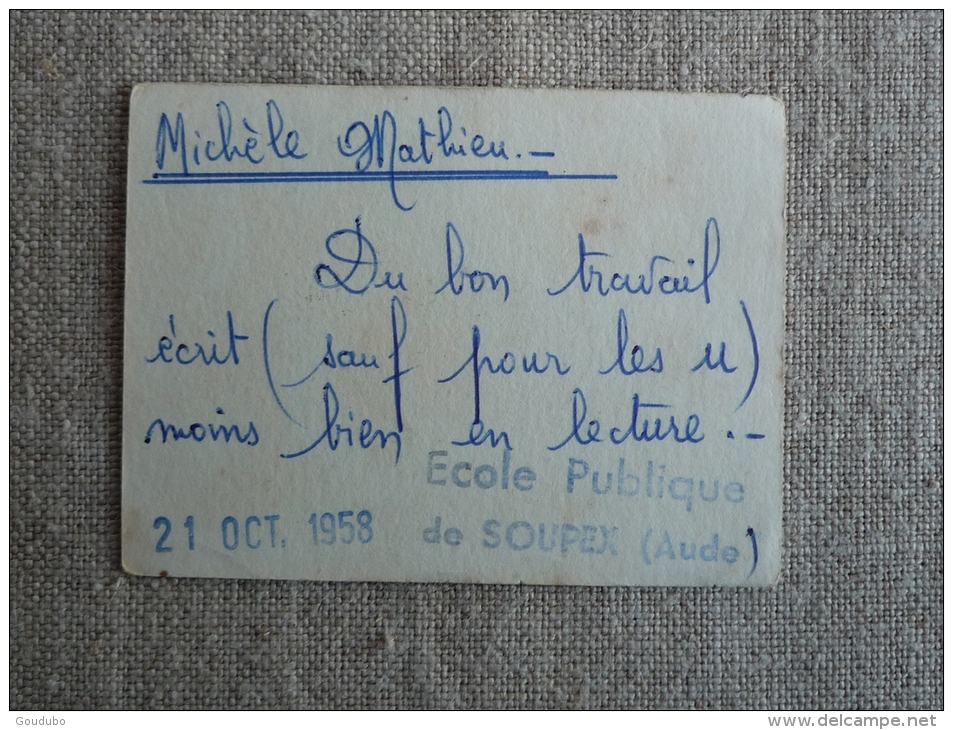 Michèle Mathieu.—
Du bon travail
écrit (sauf pour les u)
moins bien en lecture.—
Ecole Publique
21 OCT. 1958 de SOUPEX (Aude)
Goudubo
www.delcampe.net